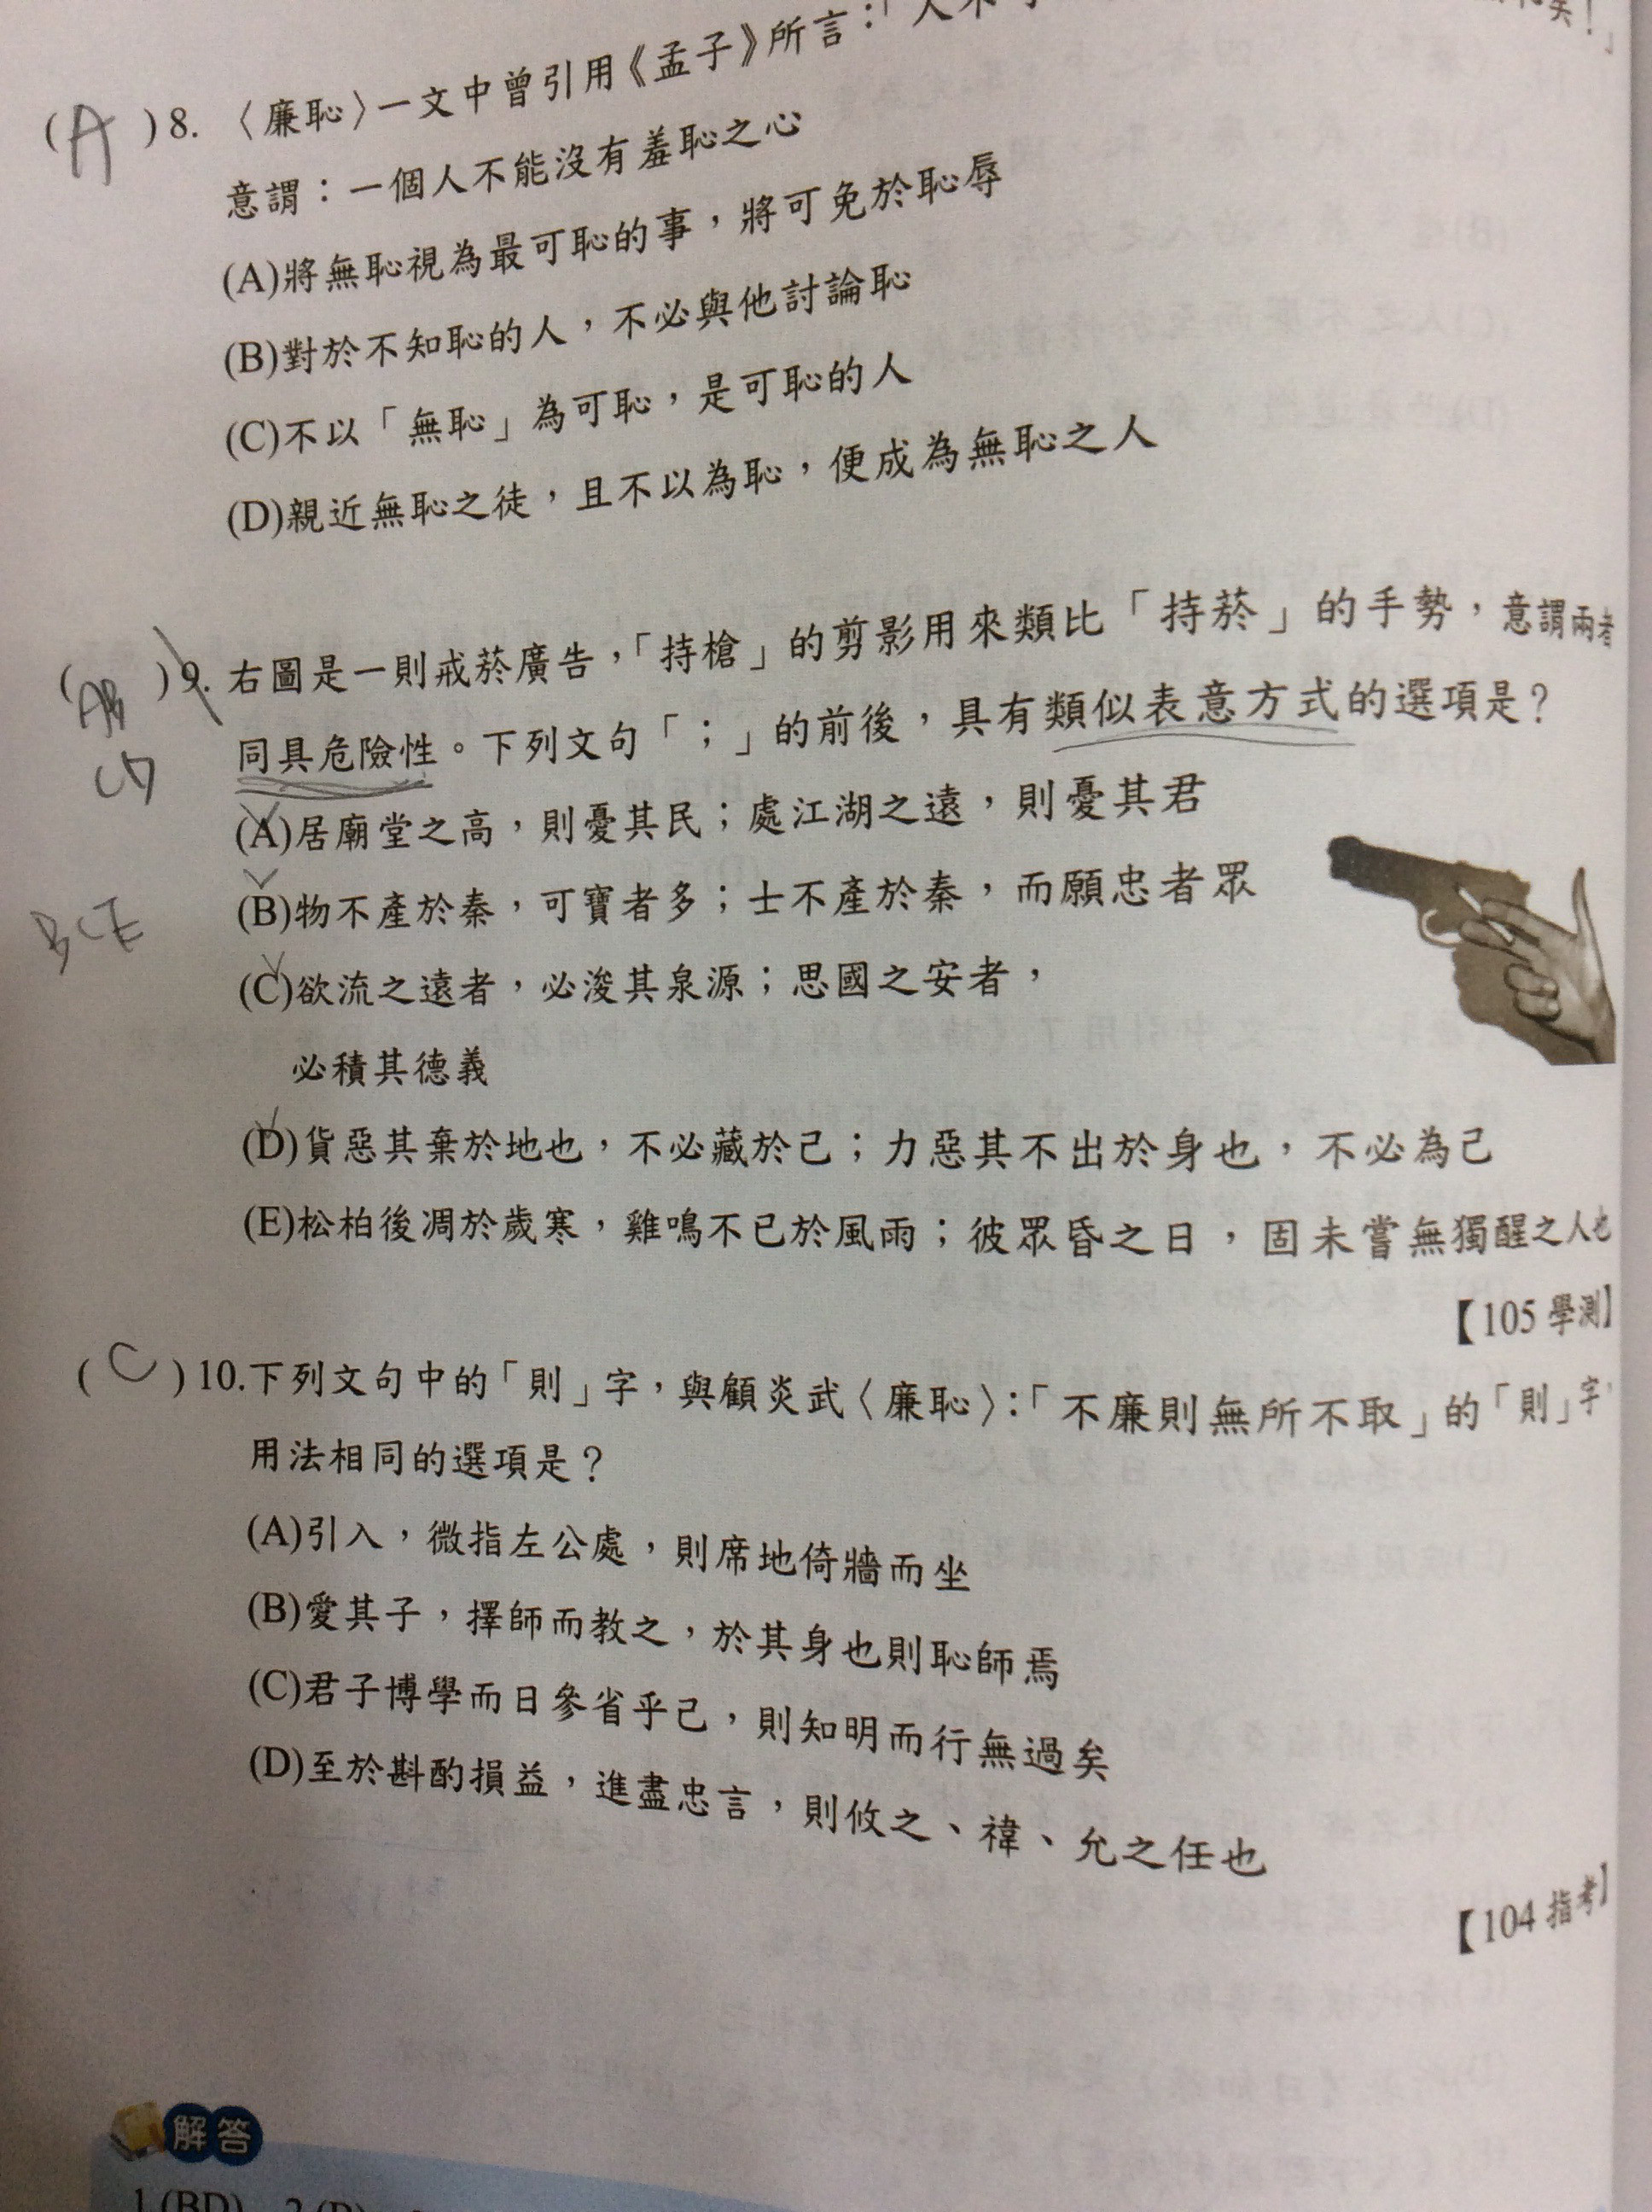 (A)8.〈廉恥〉一文中曾引用《孟子》所言：「人不
矣！」
意謂：一個人不能沒有羞恥之心
(A)將無恥視為最可恥的事，將可免於恥辱
(B)對於不知恥的人，不必與他討論恥
(C)不以「無恥」為可恥，是可恥的人
(D)親近無恥之徒，且不以為恥，便成為無恥之人
(AB CD)9.右圖是一則戒菸廣告，「持槍」的剪影用來類比「持菸」的手勢，意謂兩者
同具危險性。下列文句「；」的前後，具有類似表意方式的選項是？
(A)居廟堂之高，則憂其民；處江湖之遠，則憂其君
BCE
(B)物不產於秦，可寶者多；士不產於秦，而願忠者眾
(C)欲流之遠者，必浚其泉源；思國之安者，
必積其德義
(D)貨惡其棄於地也，不必藏於己；力惡其不出於身也，不必為己
(E)松柏後凋於歲寒，雞鳴不已於風雨；彼眾昏之日，固未嘗無獨醒之人也
【105 學測】
(C)10.下列文句中的「則」字，與顧炎武〈廉恥〉：「不廉則無所不取」的「則」字，
用法相同的選項是？
(A)引入，微指左公處，則席地倚牆而坐
(B)愛其子，擇師而教之，於其身也則恥師焉
(C)君子博學而日參省乎己，則知明而行無過矣
(D)至於斟酌損益，進盡忠言，則攸之、禕、允之任也
【104 指考】
解答
1.(BD) 2.(B)